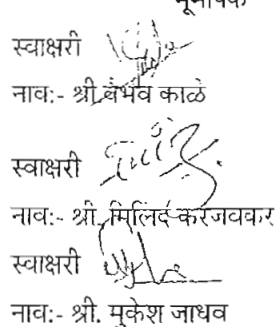 स्वाक्षरी
नाव:- श्री. वैभव काळे
स्वाक्षरी
नाव:- श्री. मिलिंद करंजवकर
स्वाक्षरी
नाव:- श्री. मुकेश जाधव